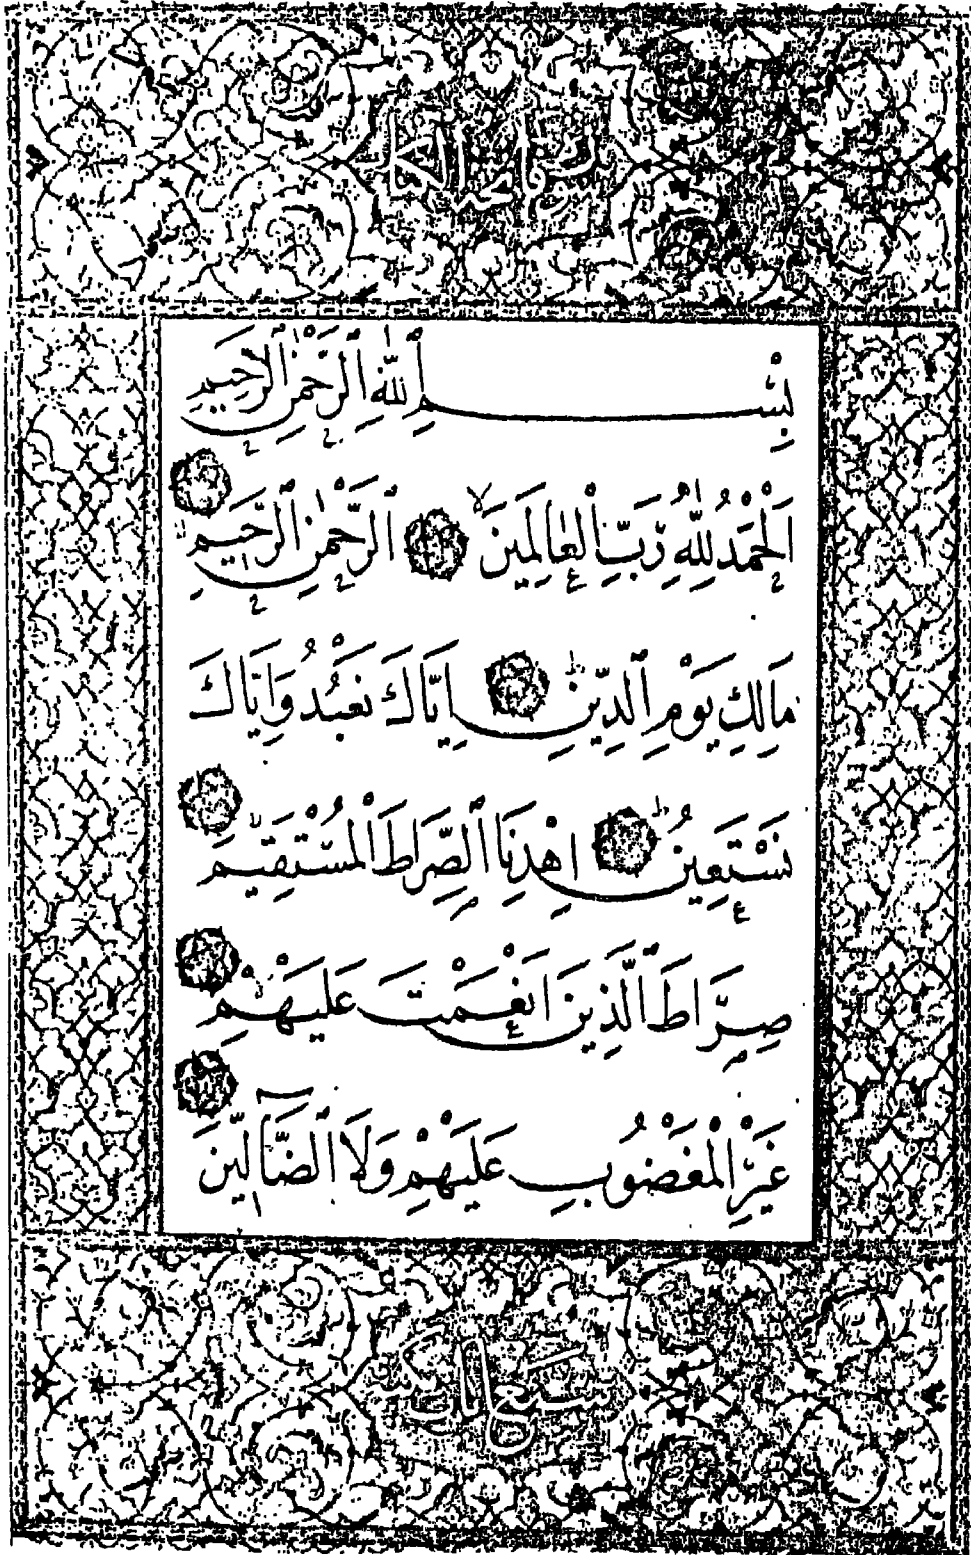 سورة فاتحة الكتاب
بِسْمِ ٱللّٰهِ ٱلرَّحْمٰنِ ٱلرَّحِيمِ
اَلْحَمْدُ لِلّٰهِ رَبِّ ٱلْعَالَمِينَ ۙ ٱلرَّحْمٰنِ ٱلرَّحِيمِ ۙ
مَالِكِ يَوْمِ ٱلدِّينِ ؕ اِيَّاكَ نَعْبُدُ وَاِيَّاكَ
نَسْتَعِينُ ؕ اِهْدِنَا ٱلصِّرَاطَ ٱلْمُسْتَقِيمَ ۙ
صِرَاطَ ٱلَّذِينَ اَنْعَمْتَ عَلَيْهِمْ ۙ
غَيْرِ ٱلْمَغْضُوبِ عَلَيْهِمْ وَلَا ٱلضَّٓالِّينَ